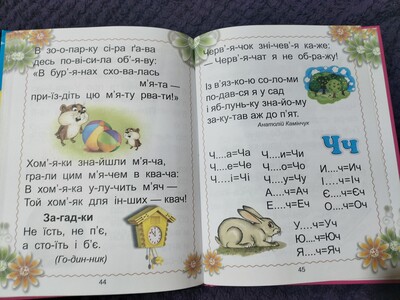 В зо-о-пар-ку сі-ра ґа-ва
десь по-ві-си-ла об'-я-ву:
«В бур'-я-нах схо-ва-лась
м'я-та —
при-їз-діть цю м'я-ту рва-ти!»
Хом'-я-ки зна-йшли м'я-ча,
гра-ли цим м'я-чем в ква-ча:
В хом'-я-ка у-лу-чить м'яч —
Той хом'-як для ін-ших — квач!
За-гад-ки
Не їсть, не п'є,
а сто-їть і б'є.
(Го-дин-ник)
44
Черв'-я-чок зні-чев'-я ка-же:
— Черв'-я-чат я не об-ра-жу!
Із в'яз-ко-ю со-ло-ми
по-дав-ся я у сад
і яб-лунь-ку зна-йо-му
за-ку-тав аж до п'ят.
Анатолій Камінчук
Чч
Ч....а=Ча
Ч....е=Че
Ч....і=Чі
Ч....и=Чи
Ч....о=Чо
Ч....у=Чу
А....ч=Ач
Е....ч=Еч
И....ч=Ич
І....ч=Іч
Є....ч=Єч
О....ч=Оч
У....ч=Уч
Ю....ч=Юч
Я....ч=Яч
45